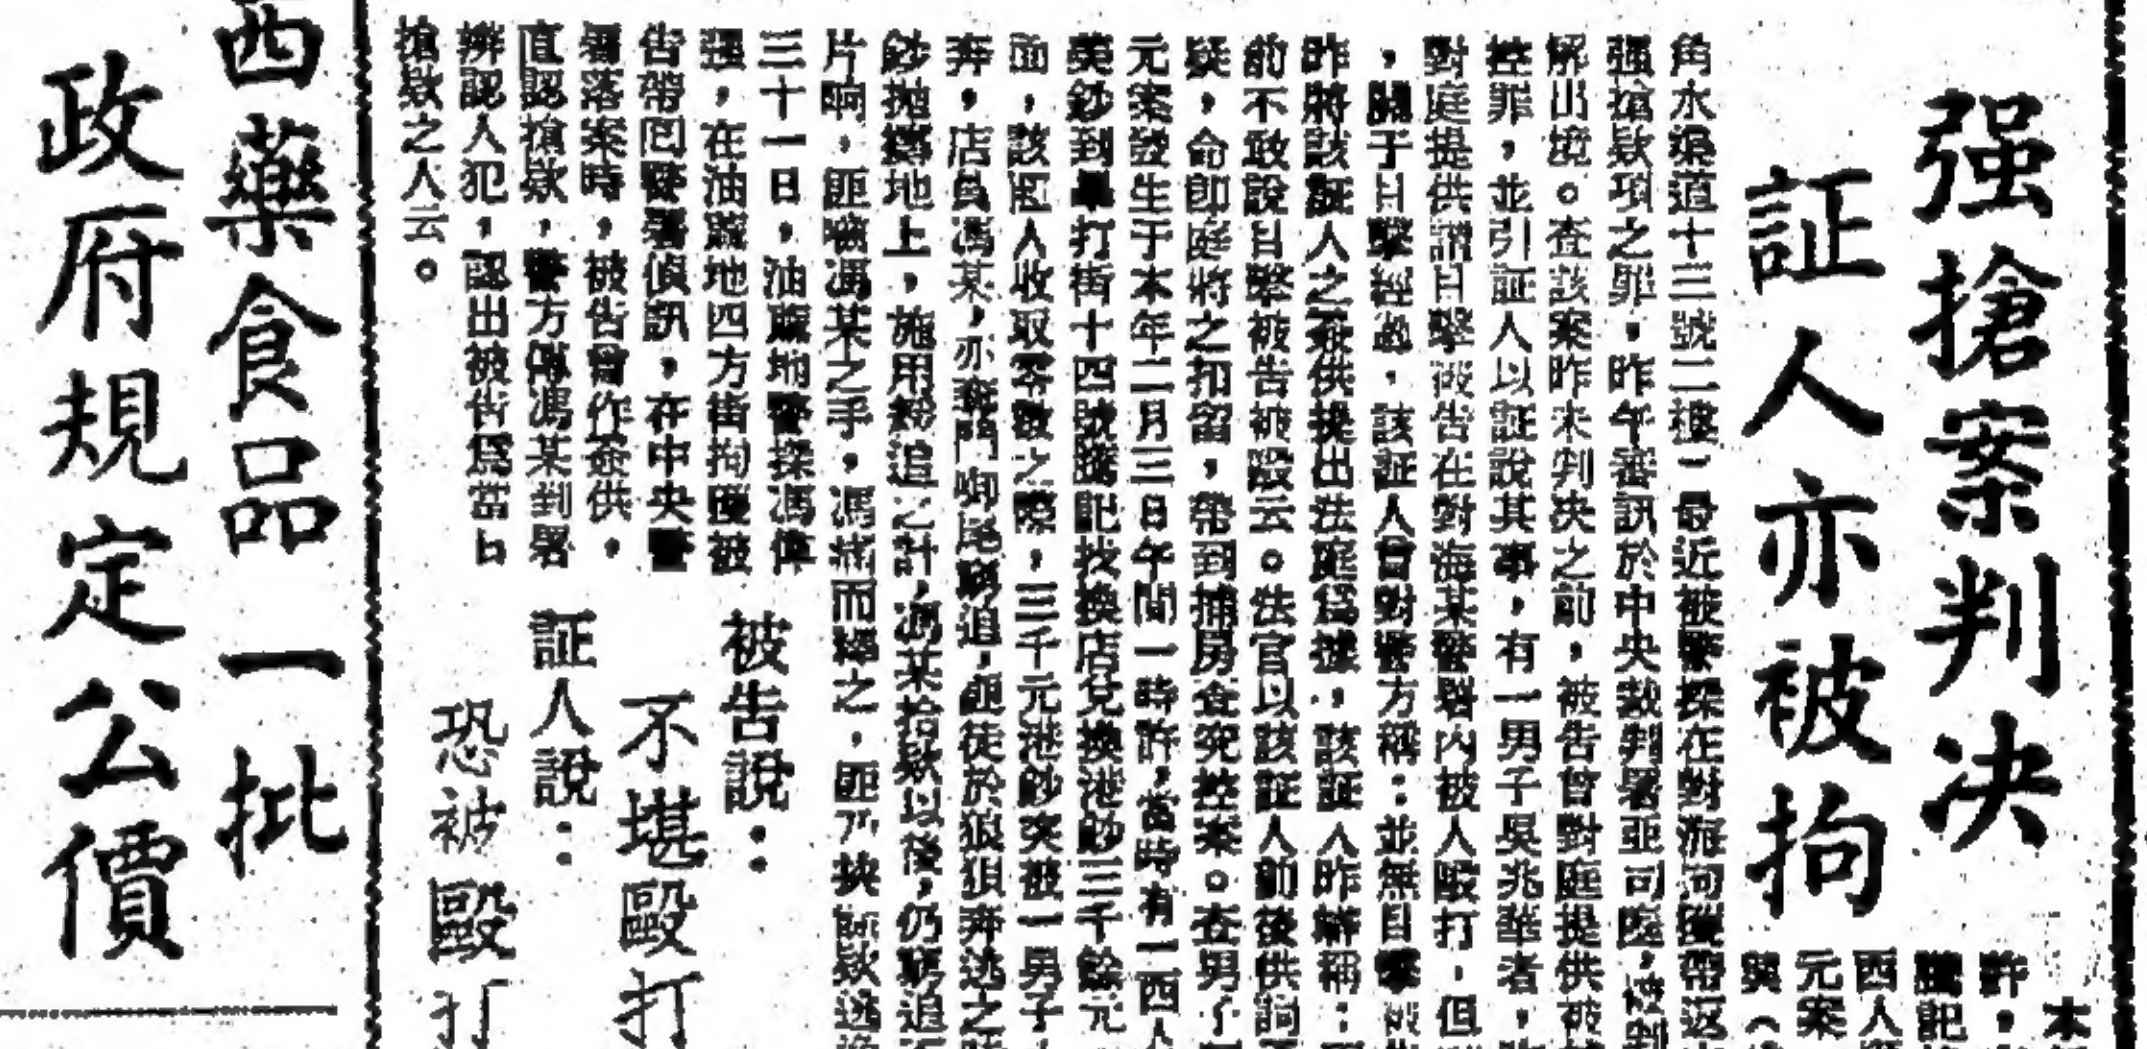 强搶案判决
証人亦被拘
本
許，
騰記
西人
元案
與（
角水渠道十三號二樓）最近被警探在對海拘獲帶返
强搶欵項之罪，昨午審訊於中央裁判署亞司庭，被判
解出境。查該案昨未判决之前，被告曾對庭提供被
控罪，並引証人以証說其事，有一男子吳兆華者，
對庭提供謂目擊被告在對海某警署内被人毆打，但
，關于目擊經過，該証人曾對警方稱：並無目擊被
昨將該証人之報供提出法庭為據，該証人昨辯稱：
前不敢說目擊被告被毆云。法官以該証人前後供詞
疑，命即庭將之扣留，帶到捕房查究控案。查男子
元案發生于本年二月三日午間一時許，當時有一西人
美鈔到畢打街十四號騰記找換店兌換港鈔三千餘元
面，該西人收取零數之際，三千元港鈔突被一男子
奔，店員馮某，亦奪門啣尾窮追，匪徒於狼狽奔逃之
鈔拋擲地上，施用緩追之計，馮某拾欵以後，仍窮追
片响，匪噬馮某之手，馮痛而釋之，匪乃挾欵逃
三十一日，油蔴地警探馮偉
强，在油蔴地四方街拘獲被
告帶囘警署偵訊，在中央警
署落案時，被告曾作簽供，
直認搶欵，警方傳馮某到署
辨認人犯，認出被告爲當日
搶欵之人云。
被告說：
不堪毆打
証人說：
恐被毆打
西藥食品一批
政府規定公價